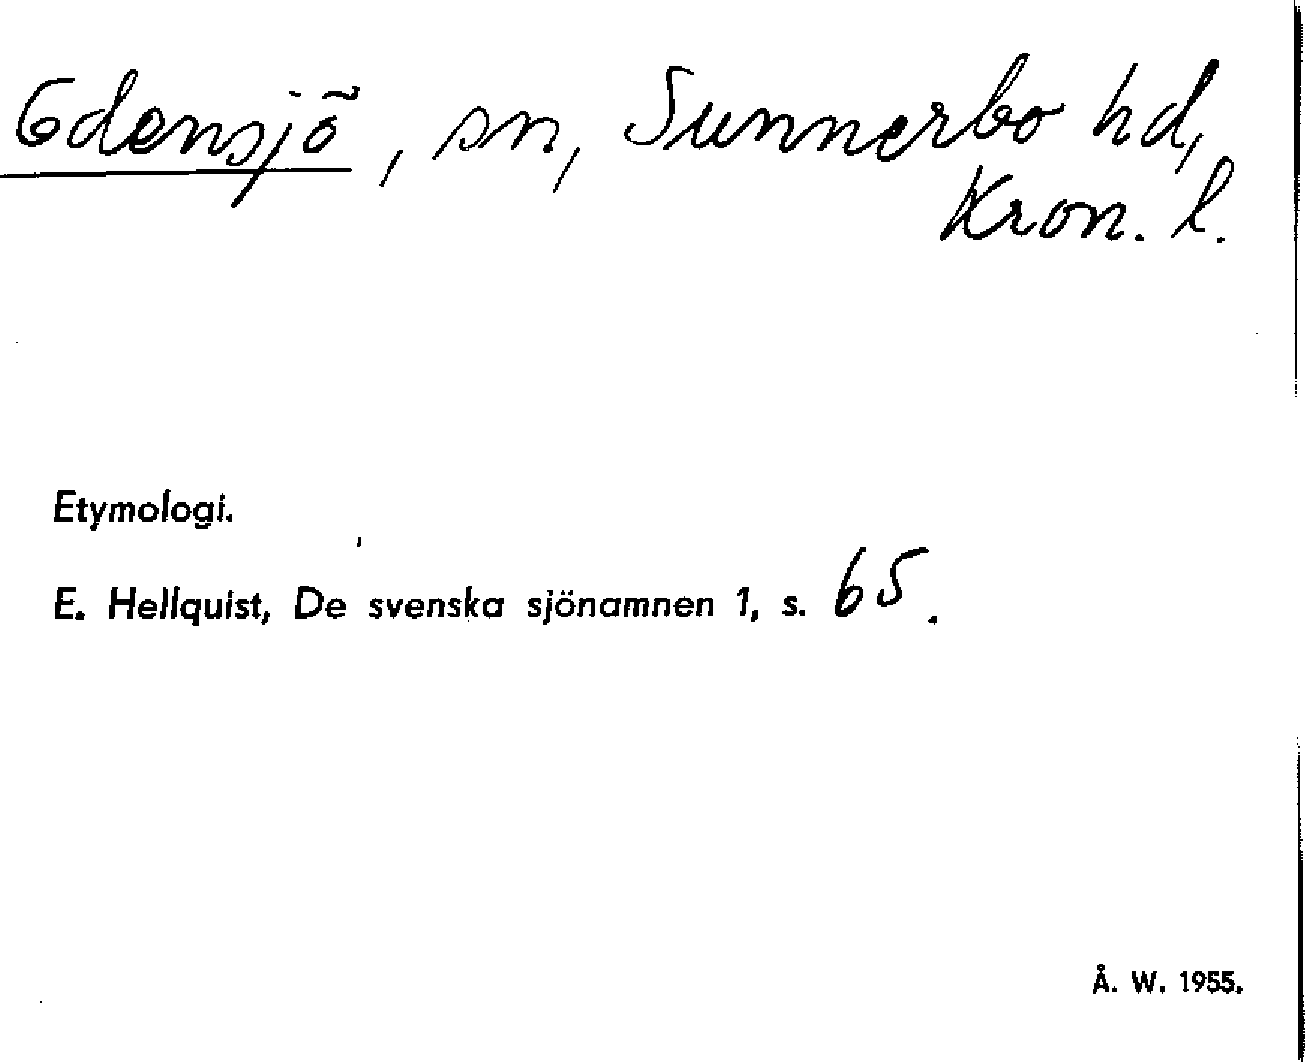 Odensjö, sn, Sunnerbo hd,
Kron. l.
Etymologi.
E. Hellquist, De svenska sjönamnen 1, s. 65.
Å. W. 1955.